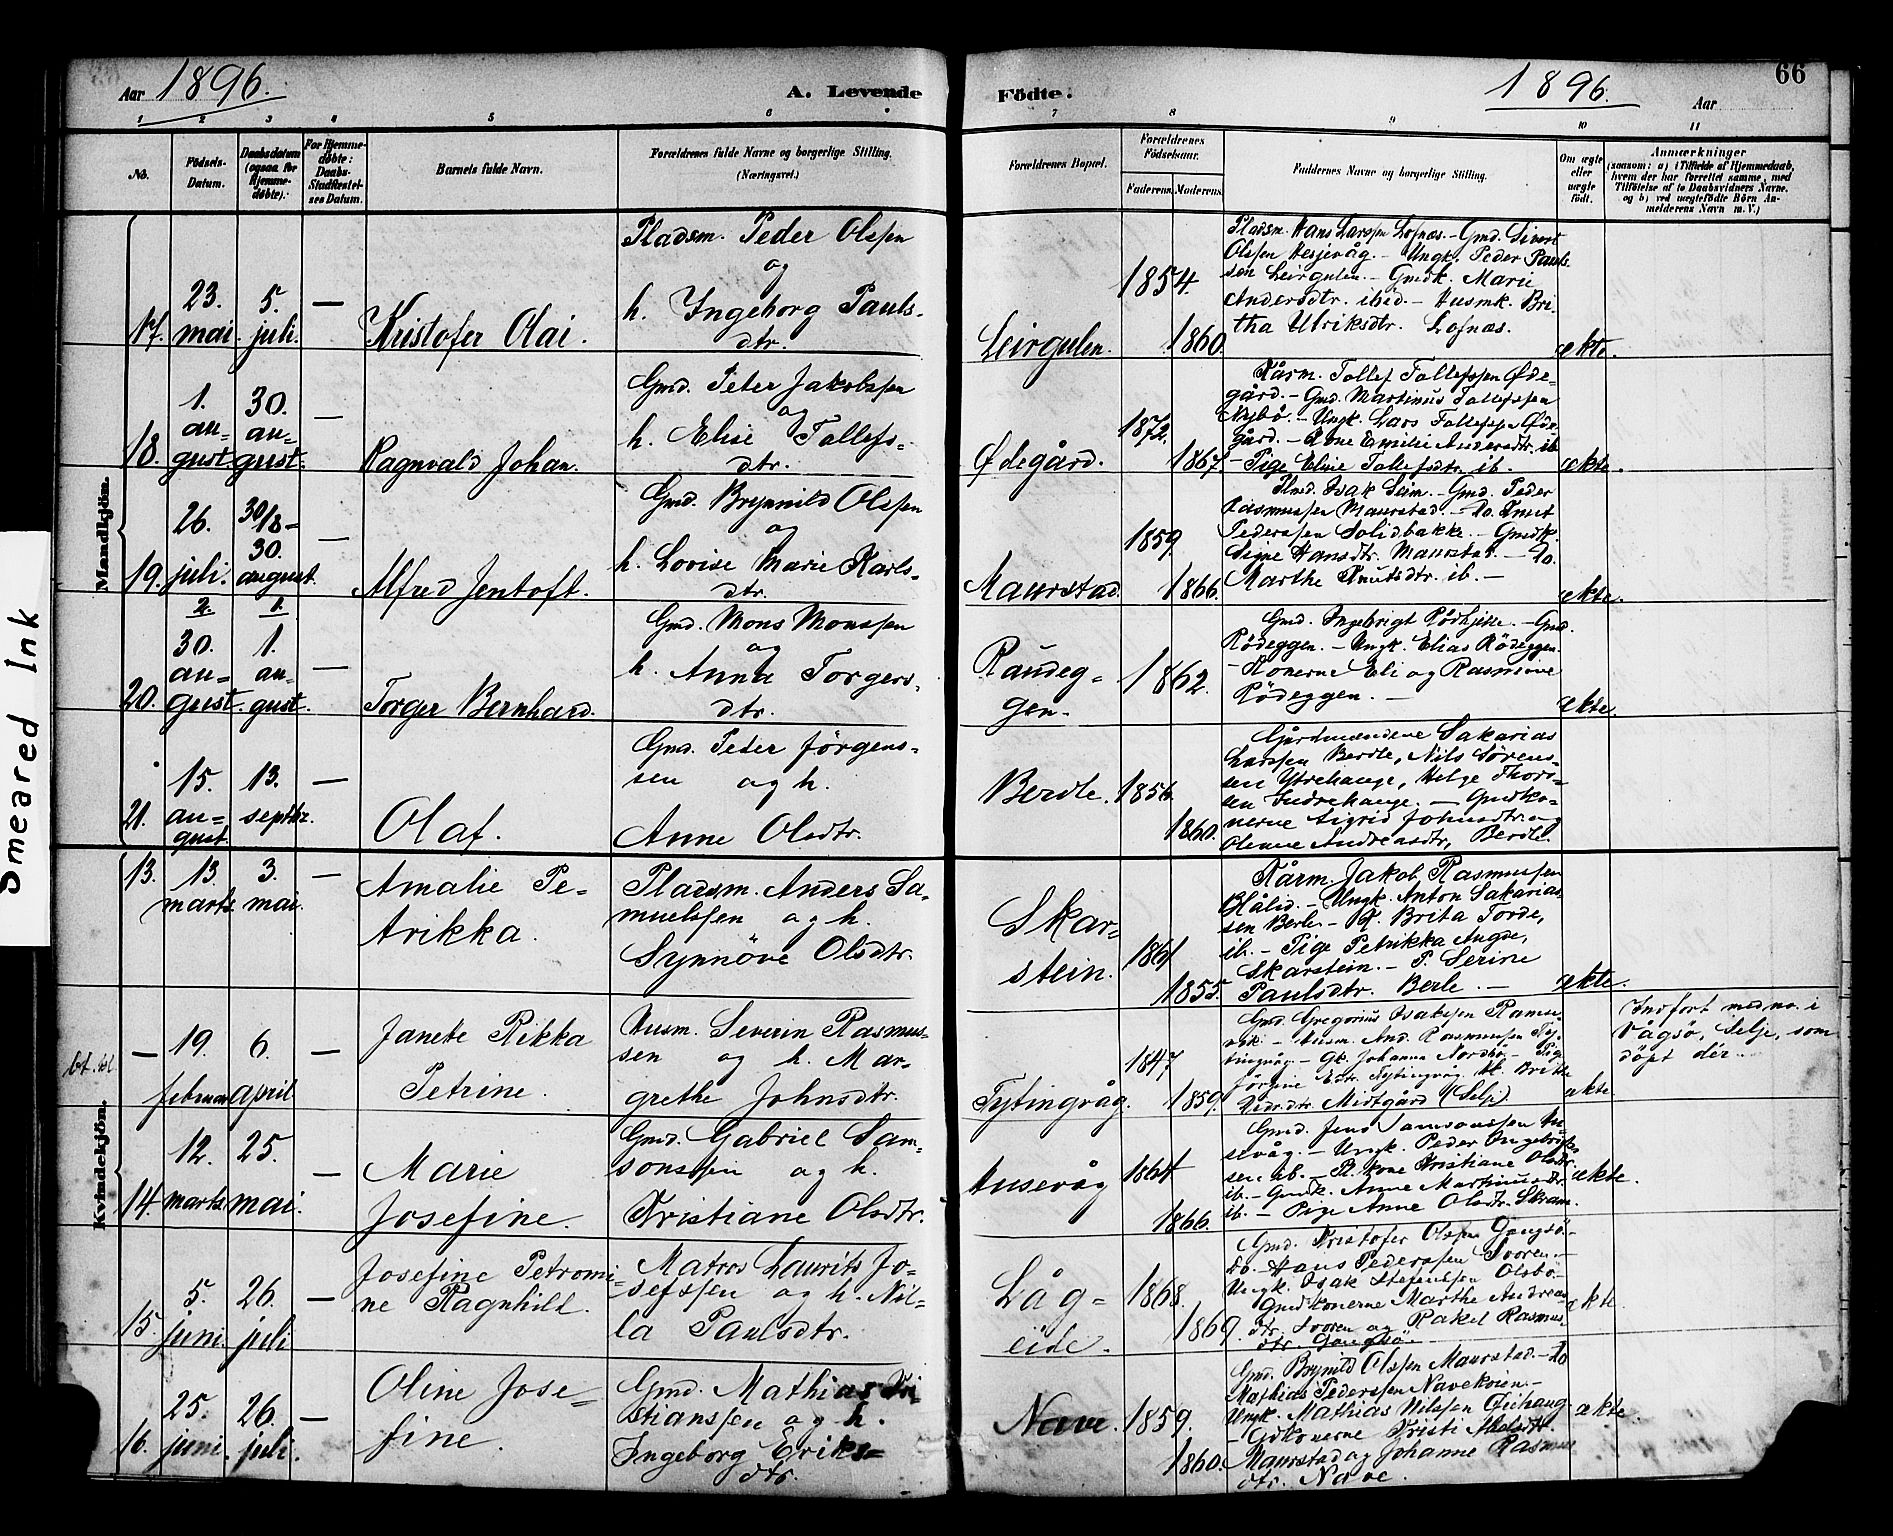 66
Aar 1896.
A. Levende
Födte.
1896.
Aar
1 2 3 4 5 6 7 8 9 10 11
No.
Födsels-
Datum.
Daabsdatum
(ogsaa for
Hjemme-
døbte).
For Hjemme-
døbte:
Daabs-
Stadfæstel-
ses Datum.
Barnets fulde Navn.
Forældrenes fulde Navne og borgerlige Stilling.
(Næringsvei.)
Forældrenes Bopæl.
Forældrenes
Fødselsaar.
Faderens. Moderens.
Faddernes Navne og borgerlige Stilling.
Om ægte
eller
uægte
født.
Anmærkninger
(saasom: a) i Tilfælde af Hjemmedaab,
hvem der har forrettet samme, med
Tilføielse af to Daabsvidners Navne.
og b) ved uægtefødte Börn An-
melderens Navn m. V.)
Smeared Ink
Mandkjön.
17.
23.
mai
5.
juli.
—
Kristofer Olai.
Pladsm. Peder Olssen
og
h. Ingeborg Pauls-
dtr.
Leirgulen.
1854.
1860.
Pladsm. Hans Larssen Lofnæs. – Gmd. Sivert
Olssen Hesjevåg. – Ungk. Peder Pauls-
sen Leirgulen. – Gmdk. Marie
Andersdtr. ibid. – Husmk. Bri-
tha Ulriksdtr. Lofnæs.
ækte.
18.
1.
au-
gust.
30.
au-
gust.
—
Ragnvald Johan.
Gmd. Peter Jakobssen
og
h. Elise Tollefs-
dtr.
Ødegård.
1872.
1867.
Kårm. Tollef Tollefssen Øde-
gård. – Gmd. Martinus Tollefssen
Nybö. – Ungk. Lars Tollefssen Øde-
gård. – Kone Emilie Andersdtr. ib.
– Pige Eline Tollefsdtr. ib.
ækte.
19.
26.
juli.
30/8 –
30.
august.
—
Alfred Jentoft.
Gmd. Brynnild Olssen
og
h. Lovise Marie Karls-
dtr.
Maurstad.
1859
1866.
Isak Seim. – Gmd. Peder
Rasmussen Maurstad. – Do. Knut
Pederssen Solidbakke. – Gmdk.
Signe Hansdtr. Maurstad. – Do.
Marthe Knutsdtr. ib. –
ækte.
20.
2.
30.
au-
gust.
1.
1.
au-
gust.
—
Torger Bernhard.
Gmd. Mons Monssen
og
h. Anna Torgers-
dtr.
Raudeg-
gen.
1862.
Gmd. Ingebrigt Rödhjelle. – Gmd.
Rödeggen. – Ungk. Elias Rödeggen.
– Konerne Eli og Rasmine
Rödeggen. –
ækte.
21.
15.
au-
gust.
13.
septbr.
—
Olaf.
Gmd. Peter Jörgens-
sen og h.
Anne Olsdtr.
Berdle.
1856.
1860.
Gårdmændene Sakarias
Larssen Berdle, Nils Sørens-
sen Ytrehauge, Helge Thors-
sen Indrehauge. – Gmdko-
nerne Sigrid Johnsdtr. og
Olenne Andreasdtr, Berdle.
Kvindekjön.
13.
13.
marts
3.
mai.
—
Amalie Pe-
trikka.
Pladsm. Anders Sa-
muelssen og h.
Synnöve Olsdtr.
Skar-
stein.
1861
1855.
Kårm. Jakob Rasmussen
Blålid. – Ungk. Anton Sakarias-
sen Berle – K. Brita Torde,
ib. – Pige Petrikka Angde,
Skarstein. – P. Serine
Paulsdtr. Berle. –
ækte.
—
19.
februar
6.
april
—
Janete Rikka
Petrine.
Husm. Severin Rasmus-
sen og h. Mar-
grethe Johnsdtr.
Tytingvåg.
1847
1859.
Gmd. Gregorius Isaksen
Husm. And. Rasmussen Ty-
tingvåg – Gk. Johanna Nordbö. – Pige
Jörgine Tytingvåg. K. Britte
Midtgård (Selje)
ækte.
Indfört med no. i
Vågsö, Selje, som
döpt dér.
14.
12.
marts.
25.
mai.
—
Marie
Josefine.
Gmd. Gabriel Sam-
sonssen og h.
Kristiane Olsdtr.
Husevåg
1864
1866.
Gmd. Jens Samsonssen Hu-
sevåg. – Ungk. Peder Ingebrigts-
sen ib. – Kone Kristiane Olsdtr.
ib. – Gmdk. Anne Martinusdtr.
ib. – Pige Anne Olsdtr. Skram.
ækte.
15.
5.
juni.
26.
juli
—
Josefine Petromi-
ne Ragnhild.
Matros Laurits Jo-
sefssen og h. Nil-
la Paulsdtr.
Låg-
eide.
1868.
1869.
Gmd. Kristofer Olssen Gangsö.
Do. Hans Pederssen Svoren. –
Ungk. Isak Steffenssen Olsbö.
Gmdkonerne Marthe Andreas-
dtr. Svoren og Rakel Rasmus-
dtr. Gangsö.
ækte
16.
25.
juni.
26.
juli.
—
Oline Jose-
fine.
Gmd. Mathias Kri-
stianssen og h.
Ingeborg Eriks-
dtr.
Nave.
1859.
1860.
Gmd. Brynild Olssen Maurstad. – Do
Mathias Pederssen Navekvien –
Ungk. Mathias Nilssen Öihaug.
– Gdkonerne Kristi
Maurstad og Johanne Rasmus-
dtr. Nave.
ækte.